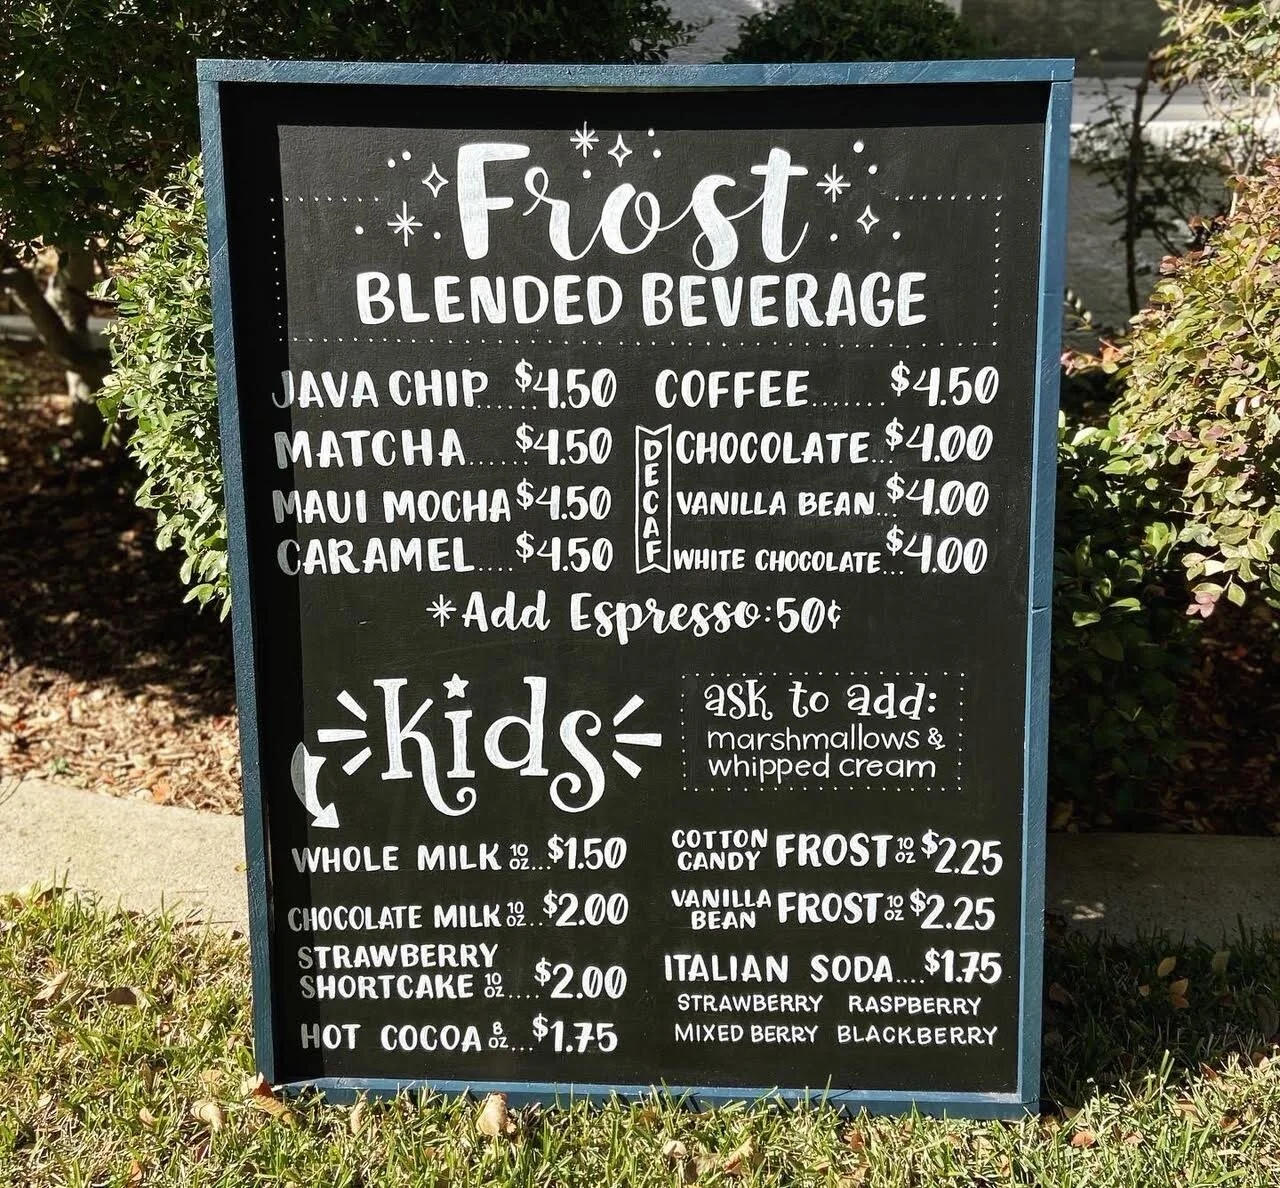 Frost
BLENDED BEVERAGE
JAVA CHIP......$4.50
MATCHA......$4.50
MAUI MOCHA $4.50
CARAMEL....$4.50
COFFEE.......$4.50
DECAF
CHOCOLATE..$4.00
VANILLA BEAN...$4.00
WHITE CHOCOLATE...$4.00
*Add Espresso:50¢
kids
ask to add:
marshmallows &
whipped cream
WHOLE MILK 10 OZ...$1.50
CHOCOLATE MILK 10 OZ..$2.00
STRAWBERRY
SHORTCAKE 10 OZ....$2.00
HOT COCOA 8 OZ...$1.75
COTTON CANDY FROST 10 OZ $2.25
VANILLA BEAN FROST 10 OZ $2.25
ITALIAN SODA....$1.75
STRAWBERRY RASPBERRY
MIXED BERRY BLACKBERRY